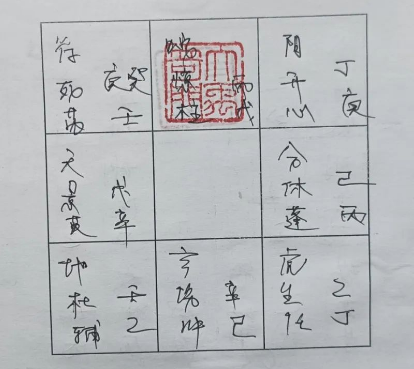 符死芮
庚癸
壬
蛇惊柱
丙戊
阴开心
丁庚
天景英
戊辛
合休蓬
己丙
地杜辅
壬乙
玄伤冲
辛己
虎生任
乙丁